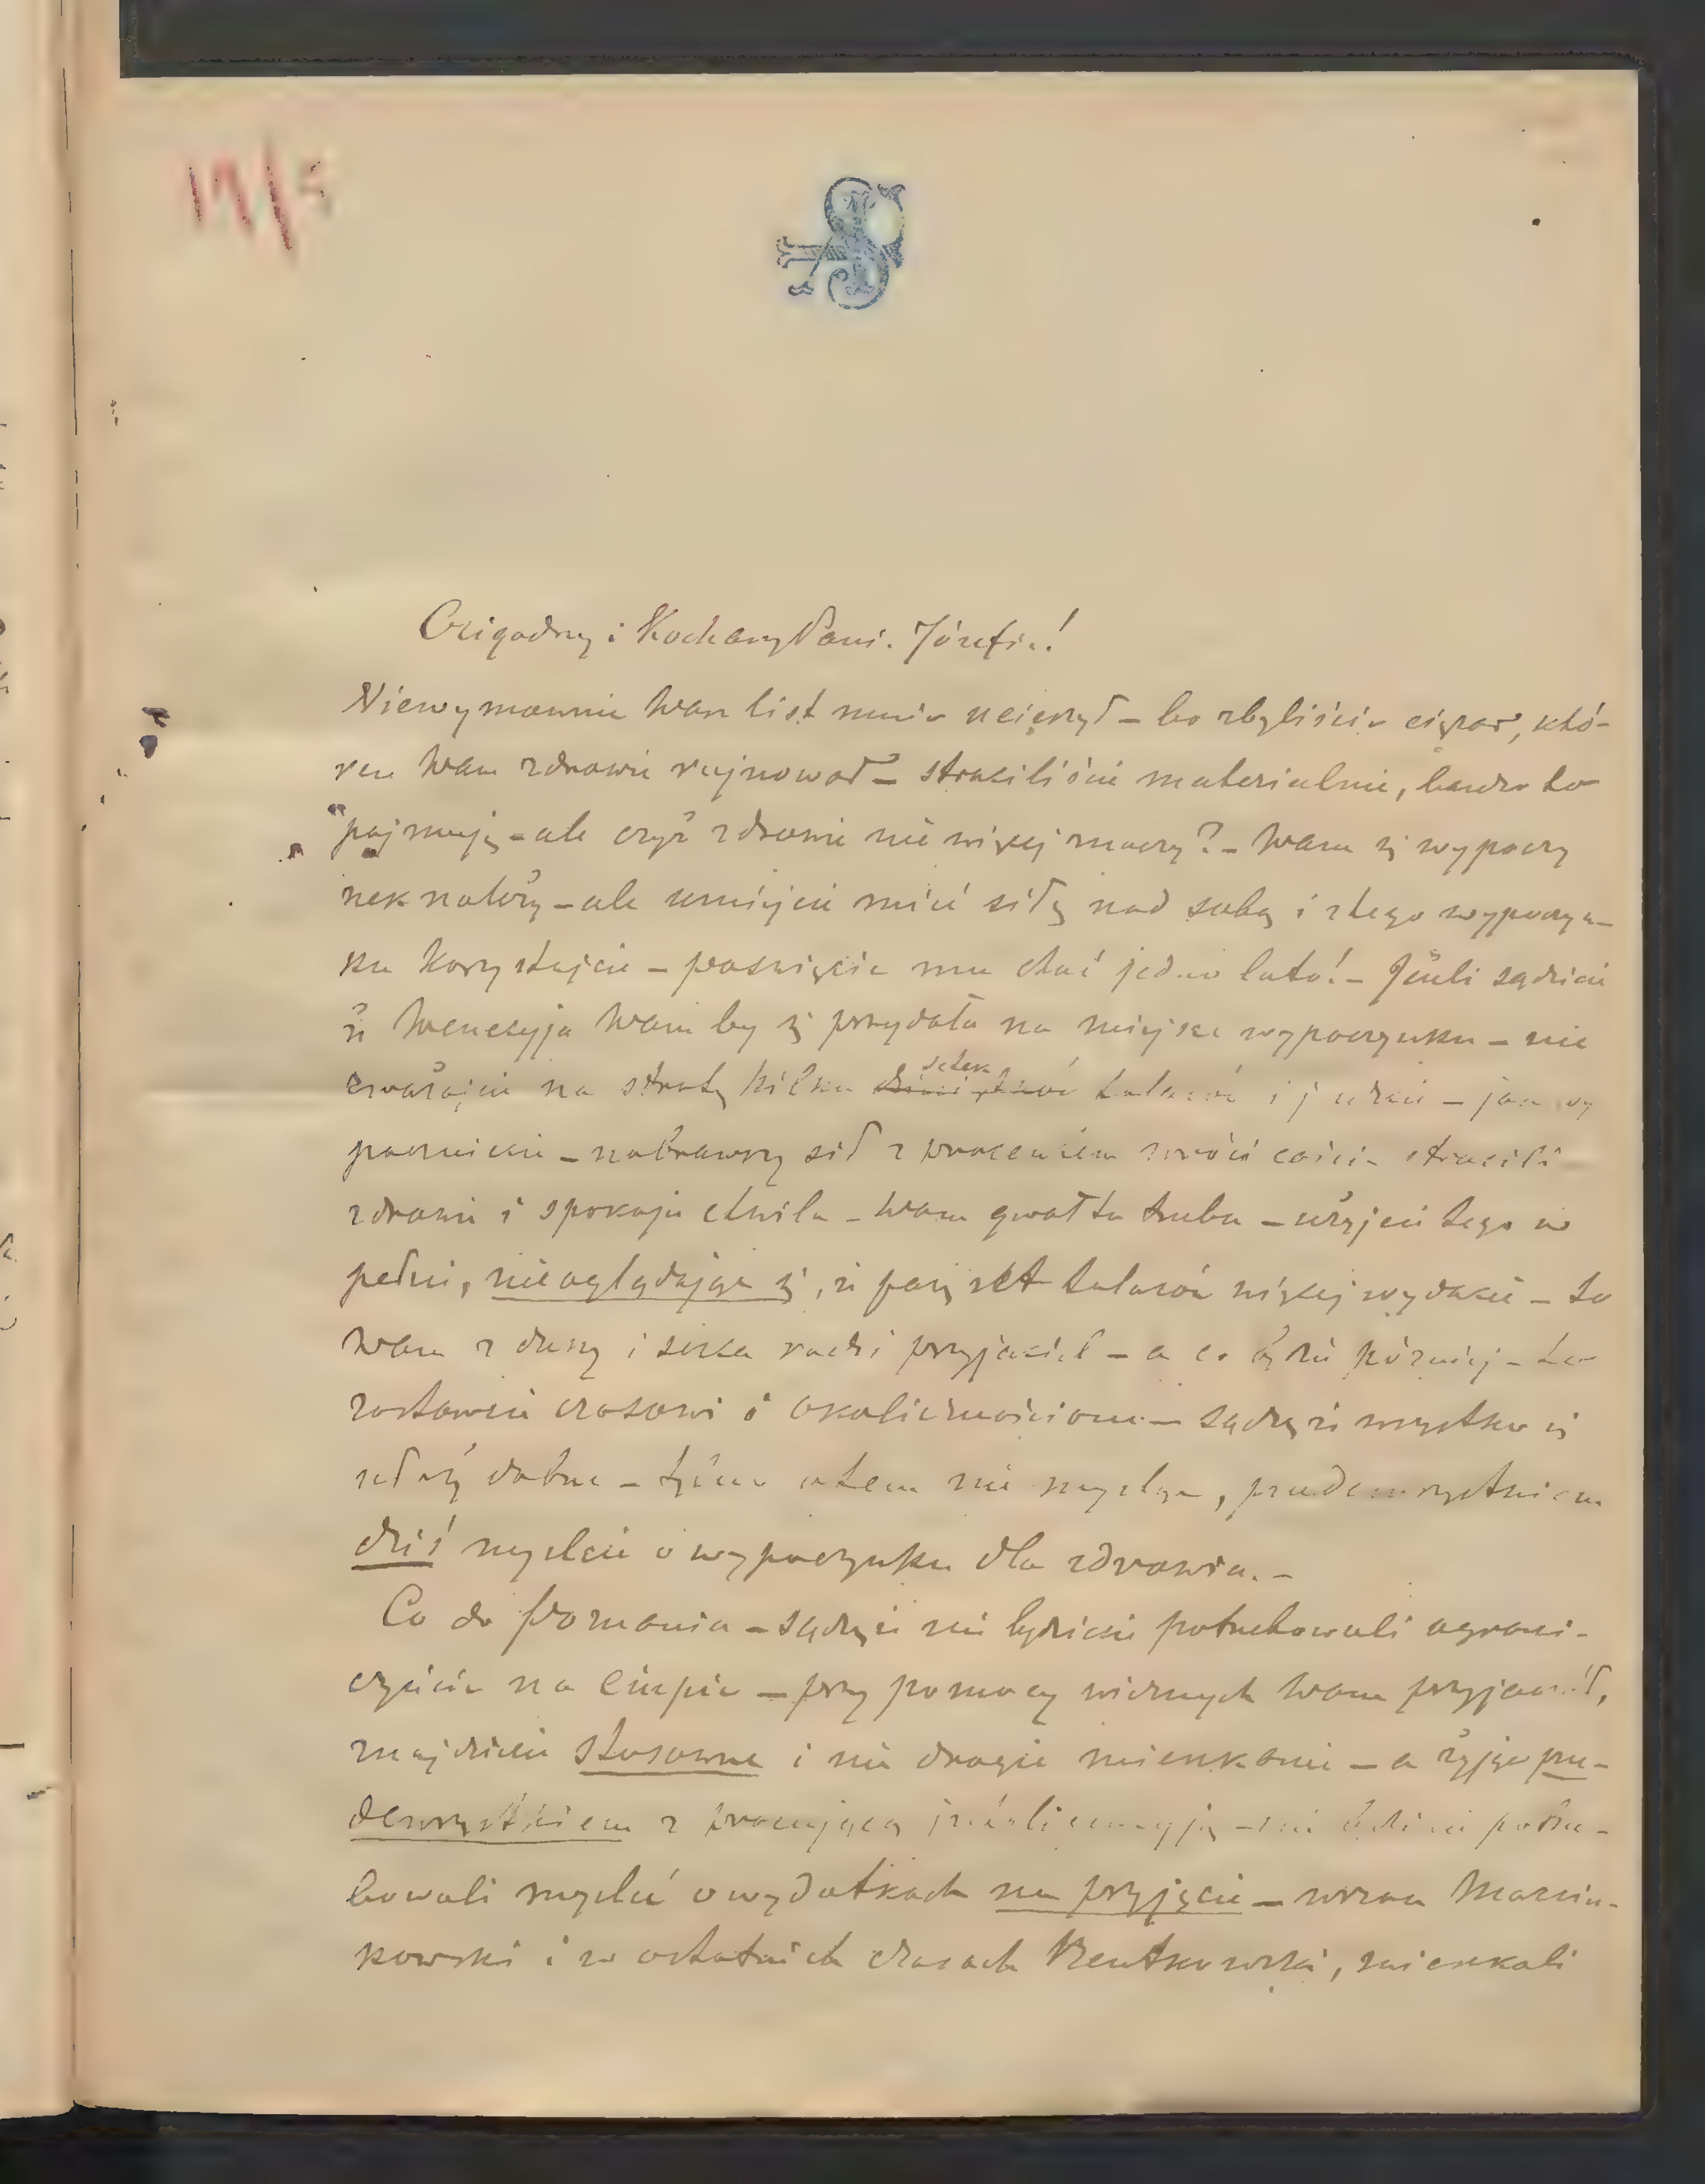 19/5
Czigodny i Kochany Panie Józefie!
Niewymownie Wasz list mnie ucieszył – bo zbyliście ciężar, któ-
ren Wam zdrowie rujnował – straciliście materialnie, bardzo to
pojmuję – ale czyż zdrowie nie więcej znaczy? – Wam się wypoczy
nek należy – ale umiejcie mieć siłę nad sobą i z tego wypoczyn-
ku korzystajcie – poświęćcie mu choć jedno lato! – Jeżeli sądzicie
że Wenecyja Wam by się przydała na miejsce wypoczynku – nie
zważajcie na stratę kilku setek talarów i jedźcie – jak wy
poczniecie – nabrawszy sił z procentem wróci coście stracili
zdrowia i spokoju chwila – Wam gwałtu trzeba – użyjcie tego w
pełni, nie oglądając się, że parę set talarów więcej wydacie – to
Wam z duszy i serca radzi przyjaciel – a co będzie później – to
zostawcie czasowi i okolicznościom – sądzę że wszystko się
ułoży dobrze – tylko o tem nie myśląc, przedewszystkiem
dziś myślcie o wypoczynku dla zdrowia. –
Co do Poznania – sądzę że nie będziecie potrzebowali ograni-
czyćcie na – przy pomocy Wam przyjaciół,
znajdziecie stosowne i nie drogie mieszkanie – a żyjąc prze-
dewszystkiem z pracującą inteligencyją – nie będziecie potrze-
bowali myśleć o wydatkach na przyjęcie – wszak Marcin-
kowski i w ostatnich czasach Rentkowski, mieszkali